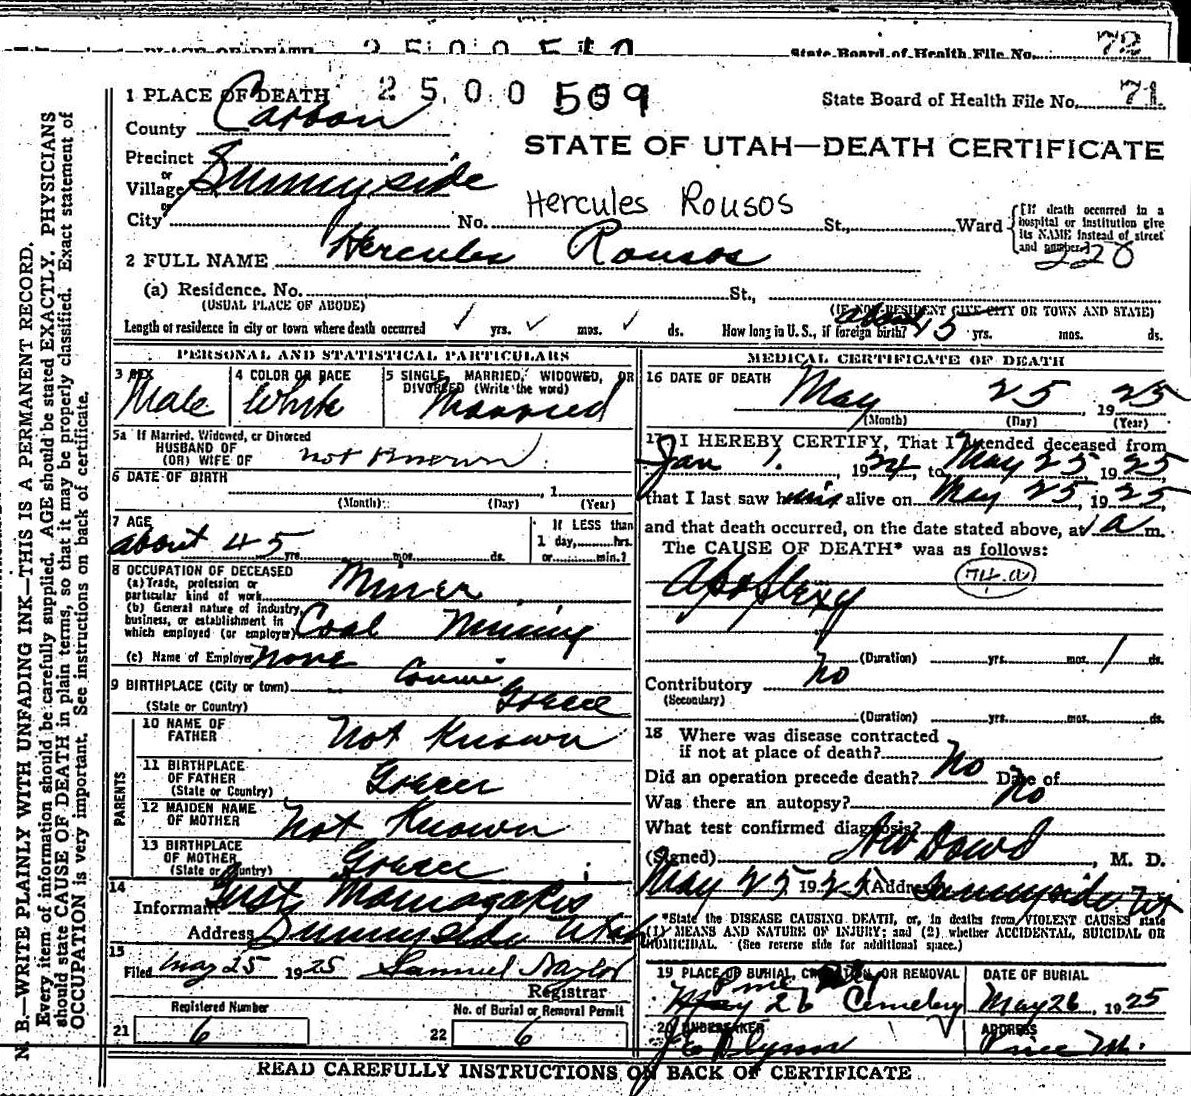 72
PLACE OF DEATH 2 5 0 0 510 State Board of Health File No.
1 PLACE OF DEATH 2 5 0 0 509 State Board of Health File No. 71
County Carbon
STATE OF UTAH—DEATH CERTIFICATE
Precinct
or
Village Sunnyside
or
City No. Hercules Rousos St., Ward
{If death occurred in a hospital or institution give its NAME instead of street and number}
220
2 FULL NAME Hercules Rousos
(a) Residence. No. St.,
(USUAL PLACE OF ABODE) (IF NON-RESIDENT GIVE CITY OR TOWN AND STATE)
Length of residence in city or town where death occurred ✓ yrs. ✓ mos. ✓ ds. How long in U. S., if foreign birth? about 15 yrs. mos. ds.
PERSONAL AND STATISTICAL PARTICULARS
3 SEX
Male
4 COLOR OR RACE
White
5 SINGLE, MARRIED, WIDOWED, OR
DIVORCED (Write the word)
Married
5a If Married, Widowed, or Divorced
HUSBAND OF
(OR) WIFE OF not known
6 DATE OF BIRTH , 1
(Month) (Day) (Year)
7 AGE
about 45 yrs. mos. ds.
If LESS than
1 day, hrs.
or min.?
8 OCCUPATION OF DECEASED
(a) Trade, profession or
particular kind of work Miner
(b) General nature of industry,
business, or establishment in
which employed (or employer) Coal Mining
(c) Name of Employer None
9 BIRTHPLACE (City or town)
(State or Country) Greece
PARENTS
10 NAME OF
FATHER Not Known
11 BIRTHPLACE
OF FATHER
(State or Country) Greece
12 MAIDEN NAME
OF MOTHER Not Known
13 BIRTHPLACE
OF MOTHER
(State or Country) Greece
14
Informant Gust Mamagakis
Address Sunnyside Utah
15
Filed May 25 1925 Samuel Naylor
Registrar
Registered Number
21 6
No. of Burial or Removal Permit
22 6
MEDICAL CERTIFICATE OF DEATH
16 DATE OF DEATH
May 25, 1925
(Month) (Day) (Year)
17 I HEREBY CERTIFY, That I attended deceased from
Jan 1. 1924, to May 25 1925
that I last saw him alive on May 25, 1925,
and that death occurred, on the date stated above, at 1 a m.
The CAUSE OF DEATH* was as follows:
Apoplexy 74.a
(Duration) yrs. mos. 1 ds.
Contributory No
(Secondary)
(Duration) yrs. mos. ds.
18 Where was disease contracted
if not at place of death?
Did an operation precede death? No Date of
Was there an autopsy? No
What test confirmed diagnosis?
(Signed) AW Dowd, M. D.
May 25 1925 (Address) Sunnyside Ut
*State the DISEASE CAUSING DEATH, or, in deaths from VIOLENT CAUSES state
(1) MEANS AND NATURE OF INJURY; and (2) whether ACCIDENTAL, SUICIDAL OR
HOMICIDAL. (See reverse side for additional space.)
19 PLACE OF BURIAL, CREMATION, OR REMOVAL
Price
Cemetery
DATE OF BURIAL
May 26, 1925
20 UNDERTAKER
J E Flynn
ADDRESS
Price Ut.
READ CAREFULLY INSTRUCTIONS ON BACK OF CERTIFICATE
N. B.—WRITE PLAINLY WITH UNFADING INK—THIS IS A PERMANENT RECORD.
Every item of information should be carefully supplied. AGE should be stated EXACTLY. PHYSICIANS
should state CAUSE OF DEATH in plain terms, so that it may be properly classified. Exact statement of
OCCUPATION is very important. See instructions on back of certificate.